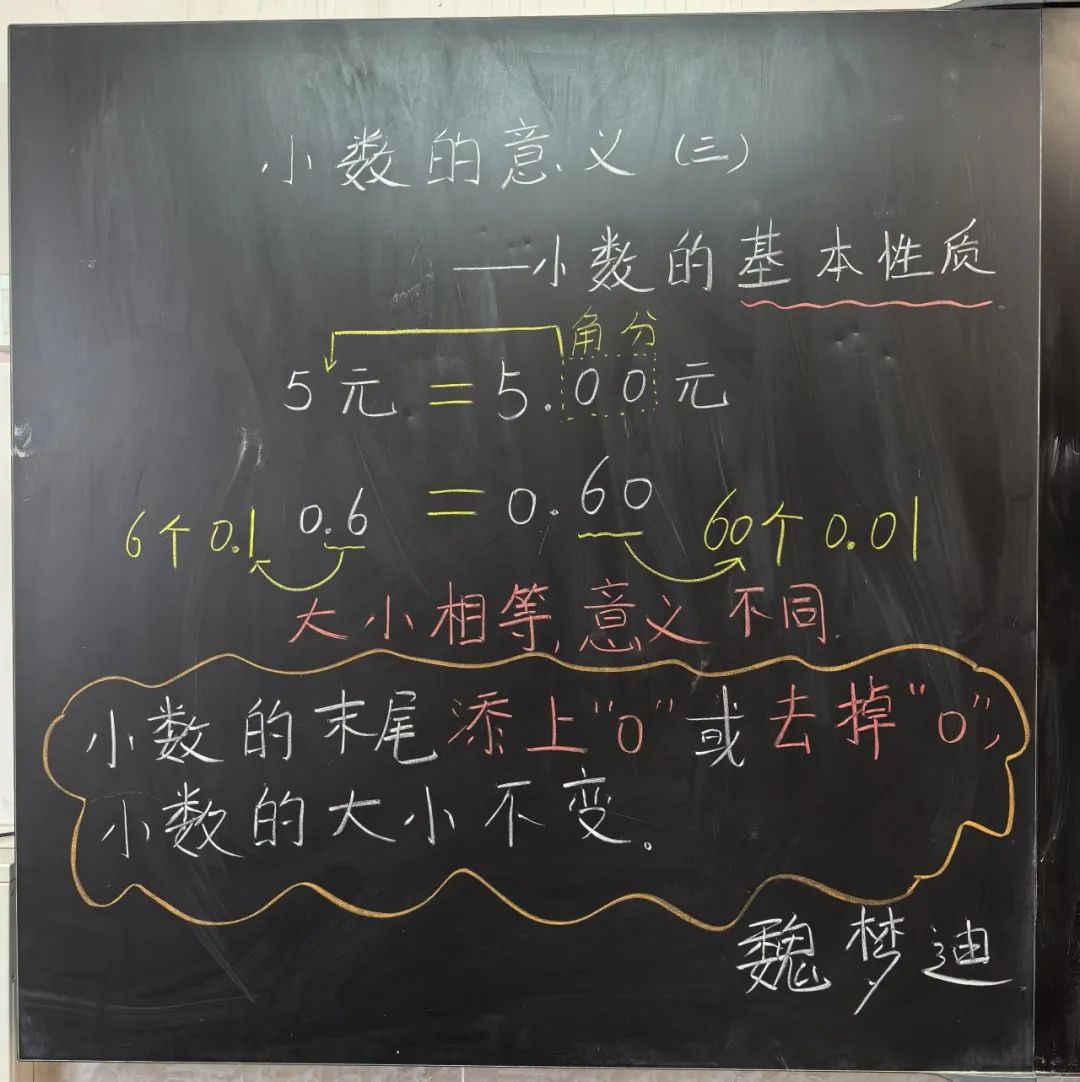 小数的意义(三)
——小数的基本性质
角分
5元=5.00元
6个0.1 0.6=0.60 60个0.01
大小相等,意义不同.
小数的末尾添上"0"或去掉"0",
小数的大小不变。
魏梦迪